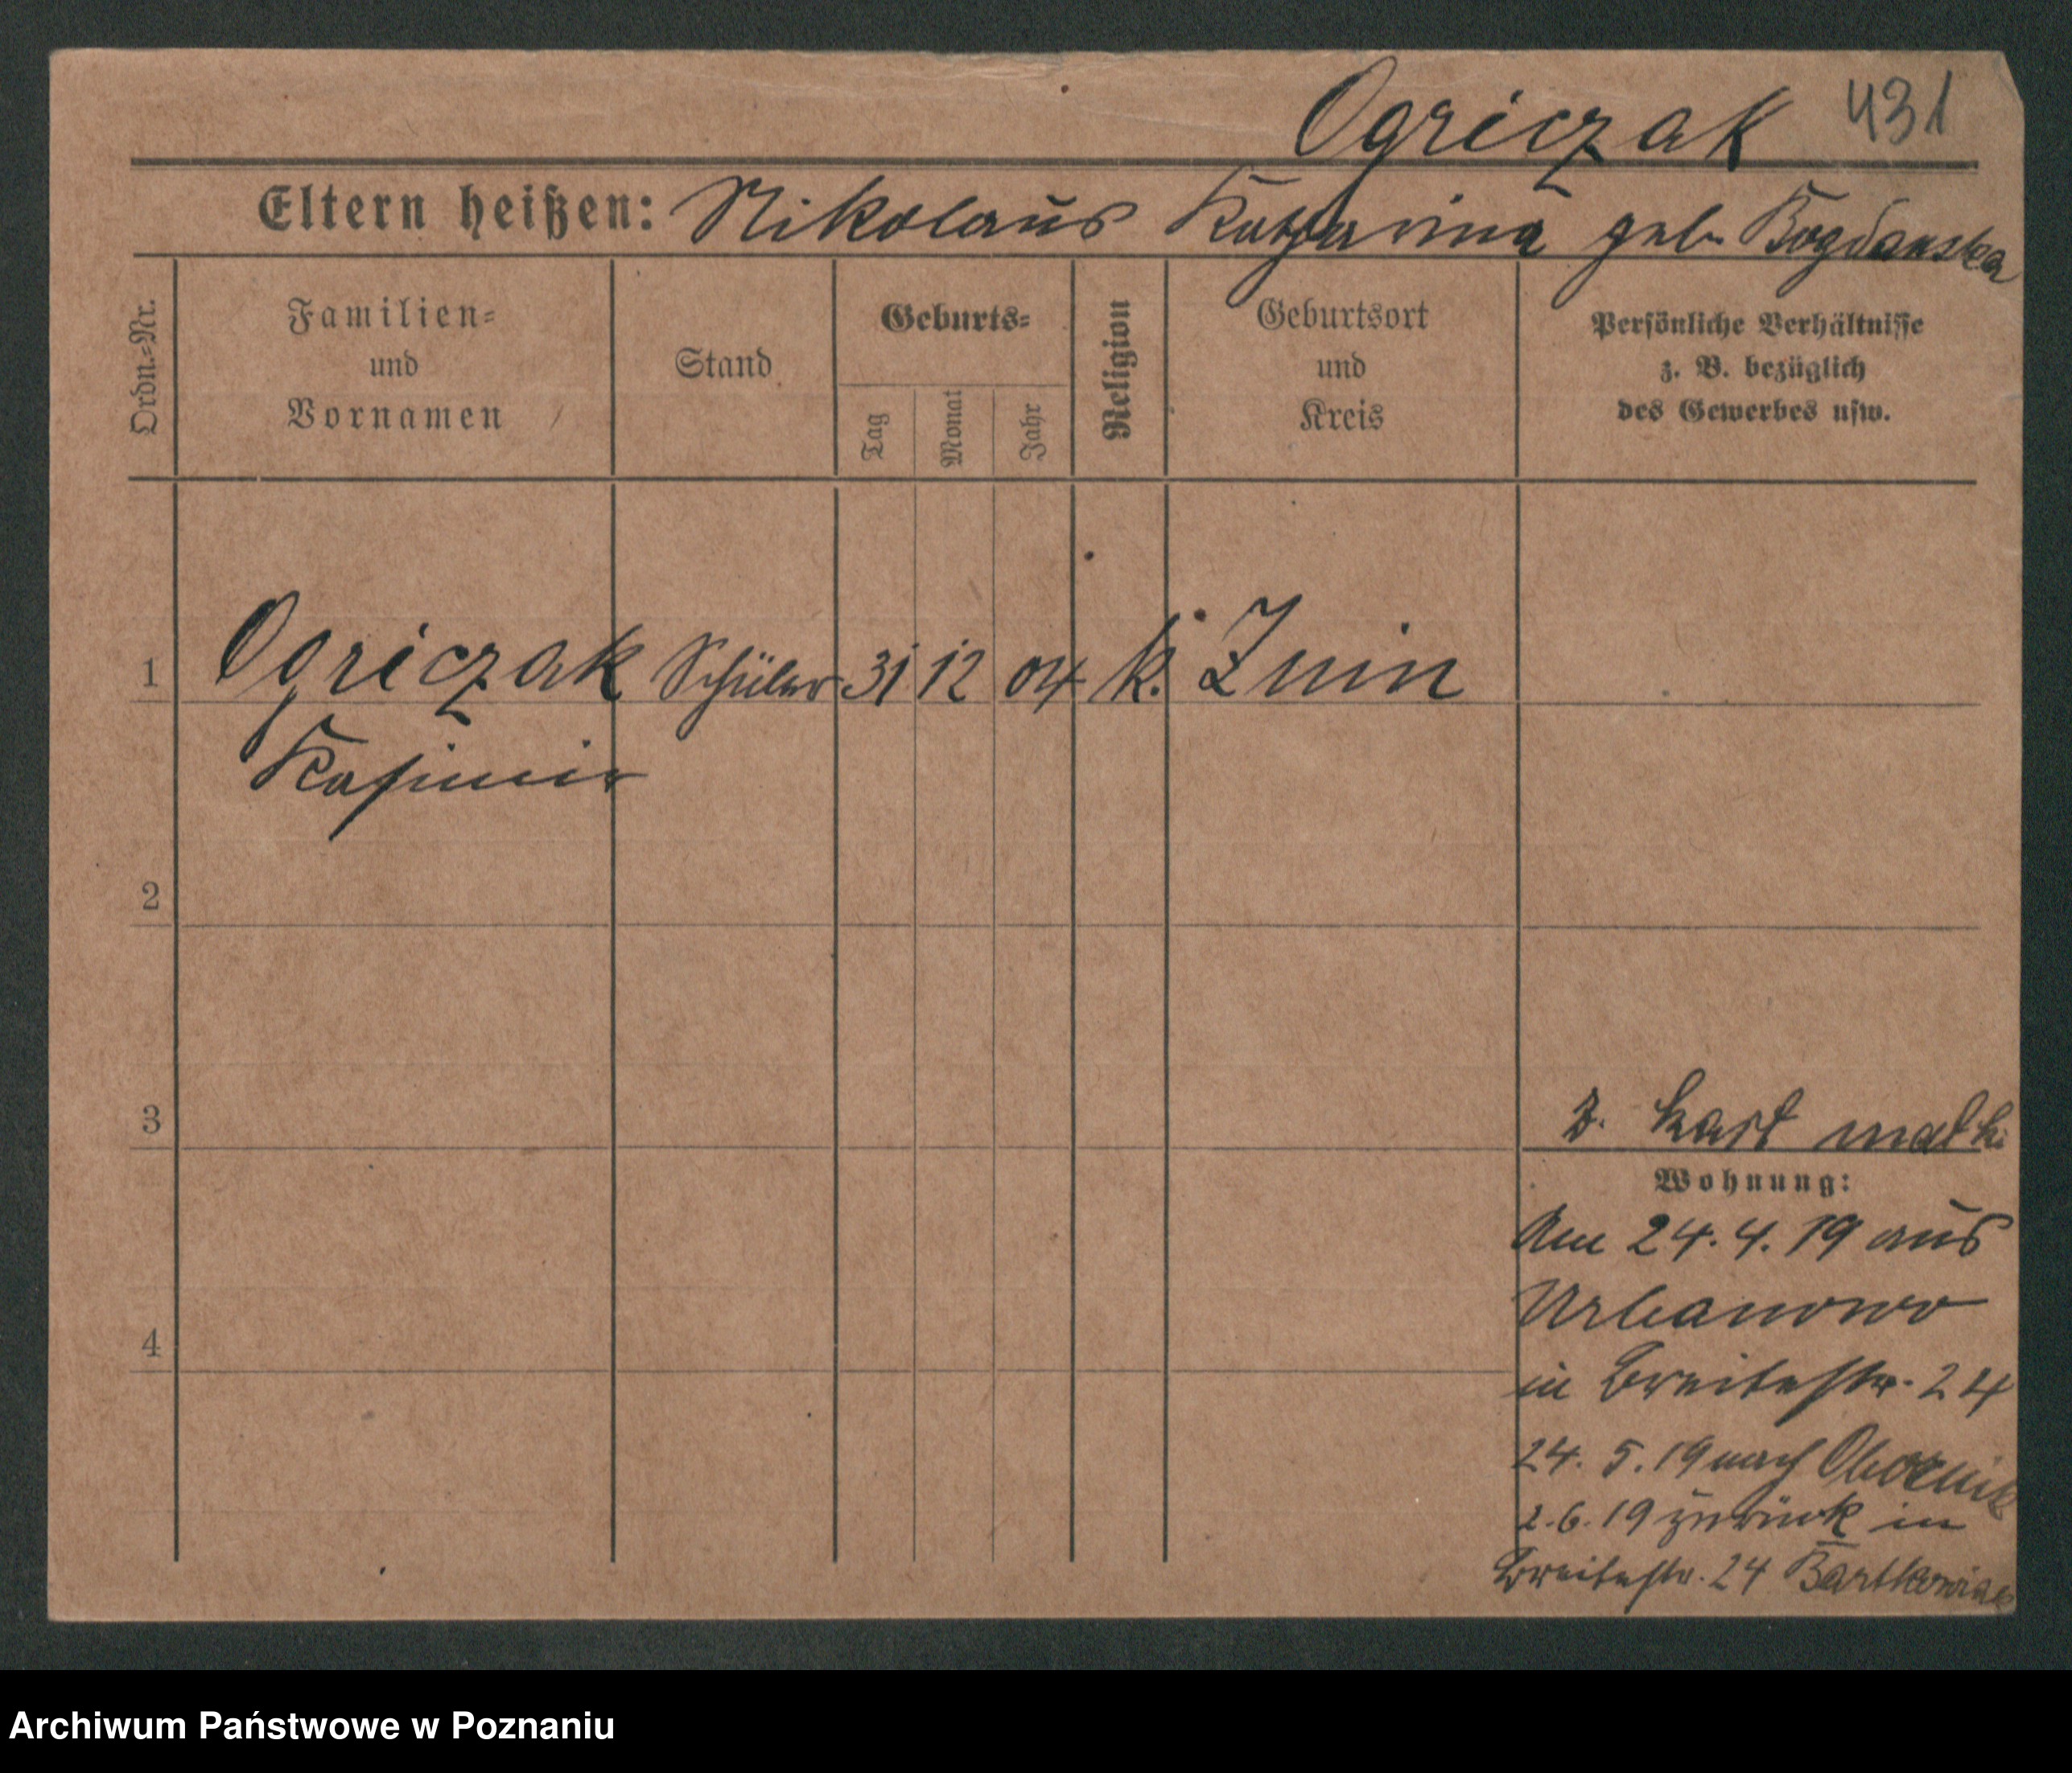 Ogriczak 431
Eltern heißen: Nikolaus Katharina geb. Bogdanska
Ordn.-Nr.
Familien=
und
Vornamen
Stand
Geburts=
Tag
Monat
Jahr
Religion
Geburtsort
und
Kreis
Persönliche Verhältnisse
z. B. bezüglich
des Gewerbes usw.
1 Ogriczak Schüler 31 12 04 k. Znin
Kasimir
2
3
z. kart matki
Wohnung:
Am 24.4.19 aus
Urbanowo
in Breitestr. 24
4
24. 5. 19 nach Obornik
2. 6. 19 zurück in
Breitestr. 24 Bartkowiak
Archiwum Państwowe w Poznaniu